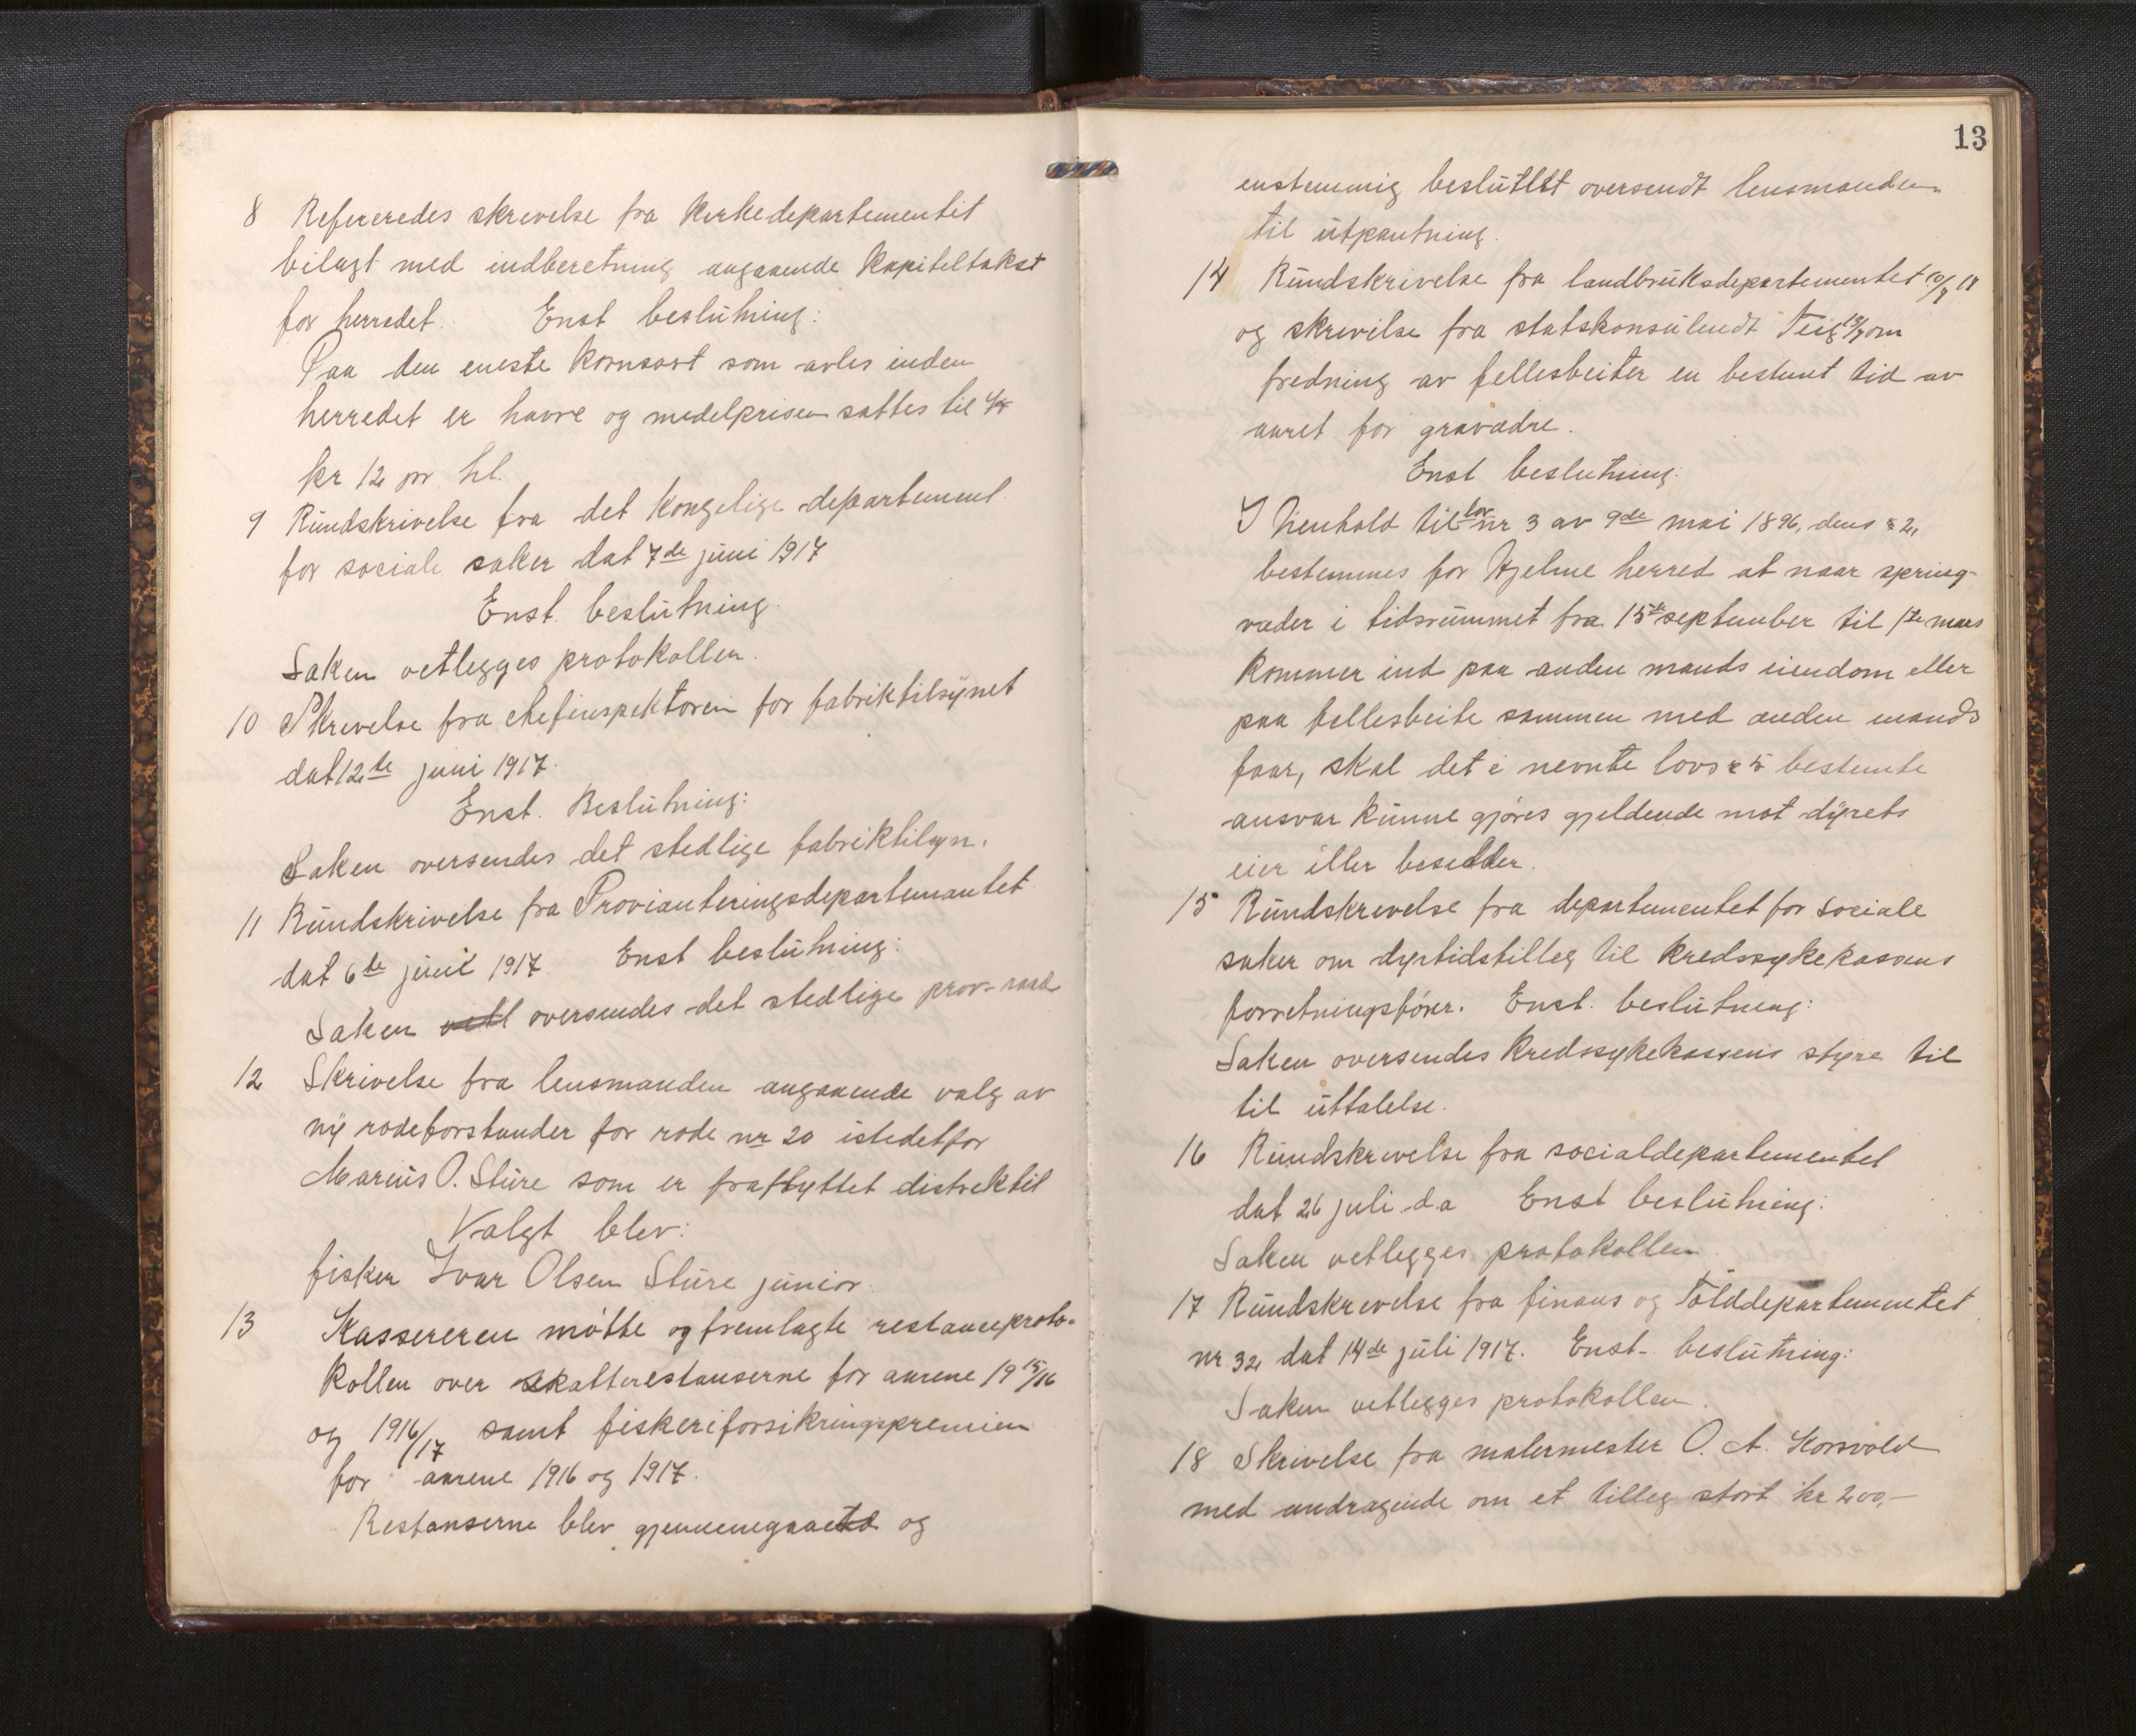 8 Refereredes skrevelse fra Kirkedepartementet
bilagt med indberetning angaaende Kapiteltakst
for herredet. Enst beslutning:
Paa den eneste kornsort som avles inden
herredet er havre og medelprisen sattes til
kr 12 pr hl.
9 Rundskrivelse fra det kongelige departement
for sociale saker dat 7de juni 1917
Enst. beslutning.
Saken vetlegges protokollen.
10 Skrevelse fra chefinspektøren for fabriktilsynet
dat 12te juni 1917.
Enst. Beslutning:
Saken oversendes det stedlige fabriktilsyn.
11 Rundskrivelse fra Provianteringsdepartementet
dat 6te juni 1917 Enst beslutning:
Saken oversendes det stedlige prov-raad
12 Skrivelse fra lensmanden angaaende valg av
ny rodeforstander for rode nr 20 istedetfor
Marius O. Sture som er fraflyttet distrektit
Valgt blev:
fisker Ivar Olsen Sture junior.
13 Kassereren møtte og fremlagte restanceproto-
kollen over skatterestanserne for aarene 1915/16
og 1916/17 samt fiskeriforsikringspremien
for aarene 1916 og 1917.
Restanserne blev gjennemgaaet og
13
enstemmig besluttet oversendt lensmanden
til utpantning.
14 Rundskrivelse fra landbruksdepartementet
og skrevilse fra statskonsulendt Teig om
fredning av fellesbeiter en bestemt tid av
aaret for gravædre.
Enst beslutning:
I henhold til lov nr 3 av 9de mai 1896, dens § 2,
bestemmes for Hjelme herred at naar spring-
væder i tidsrummet fra 15de september til 1te mars
kommer ind paa anden mands eiendom eller
paa fellesbeite sammen med anden mands
faar, skal det i nevnte lovs § 5 bestemte
ansvar kunne gjøres gjeldende mot dyrets
eier eller besedder.
15 Rundskrevelse fra departementet for sociale
saker om dyrtidstilleg til kredssykekassens
forretningsfører. Enst. beslutning:
Saken oversendes kredssykekassens styre til
til uttalelse.
16 Rundskrevelse fra socialdepartementet
dat 26 juli d.a Enst beslutning:
Saken vetlegges protokollen
17 Rundskrevelse fra finans og Tolddepartementet
nr 32 dat 14de juli 1917. Enst. beslutning:
Saken vetlegges protokollen.
18 Skrivelse fra malermester O. A. Korsvold
med andragende om et tilleg stort kr 200,-